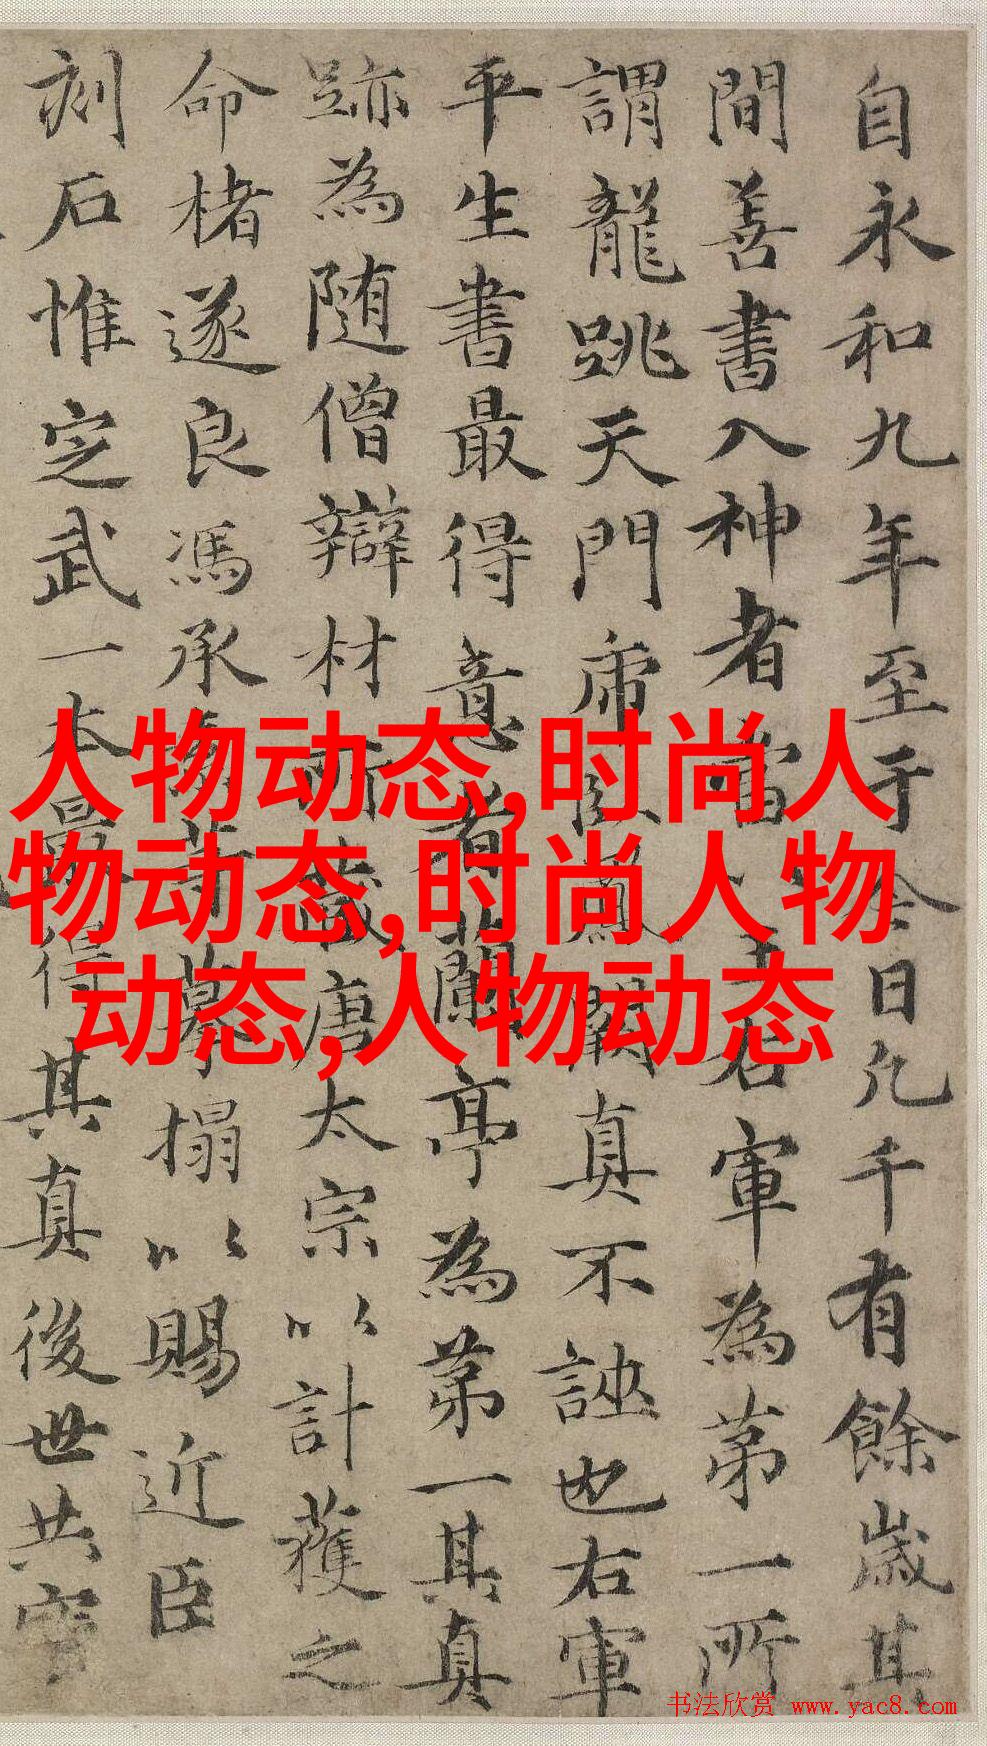 自永和九年至于今日凡千有餘歲其
間善書入神者當王右軍為第一所
謂龍跳天門虎卧鳳閣真不誣也右軍
平生書最得意者蘭亭為第一其真
跡為随僧辯材所藏唐太宗以計獲之
命楮遂良馮承等摹搨以賜近臣
刻石惟定武一本最得其真後世共寳
人物动态,时尚人
物动态,时尚人物
动态,人物动态
书法欣赏 www.yac8.com